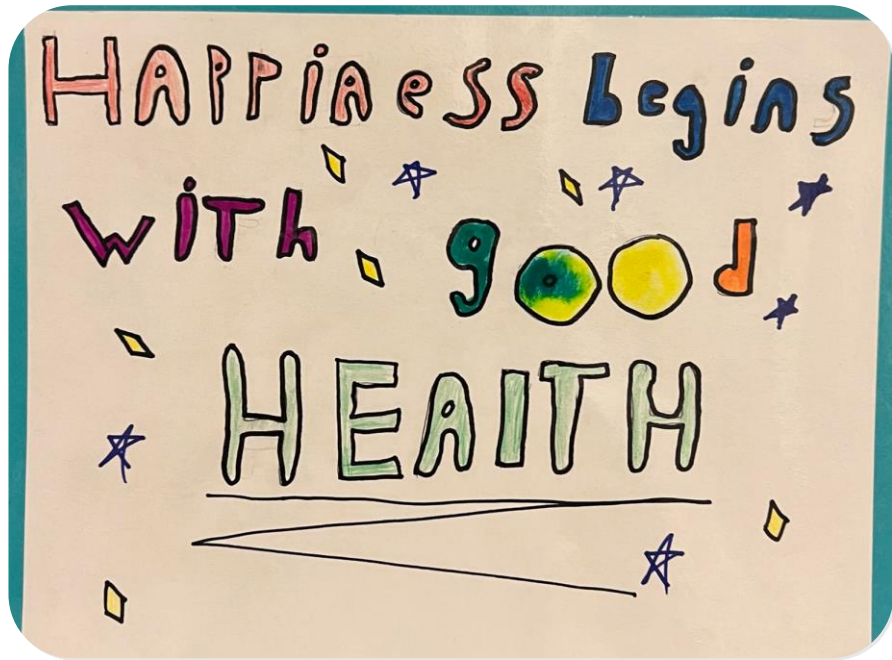 HAPPiness begins
wiTh good
HEAlTH